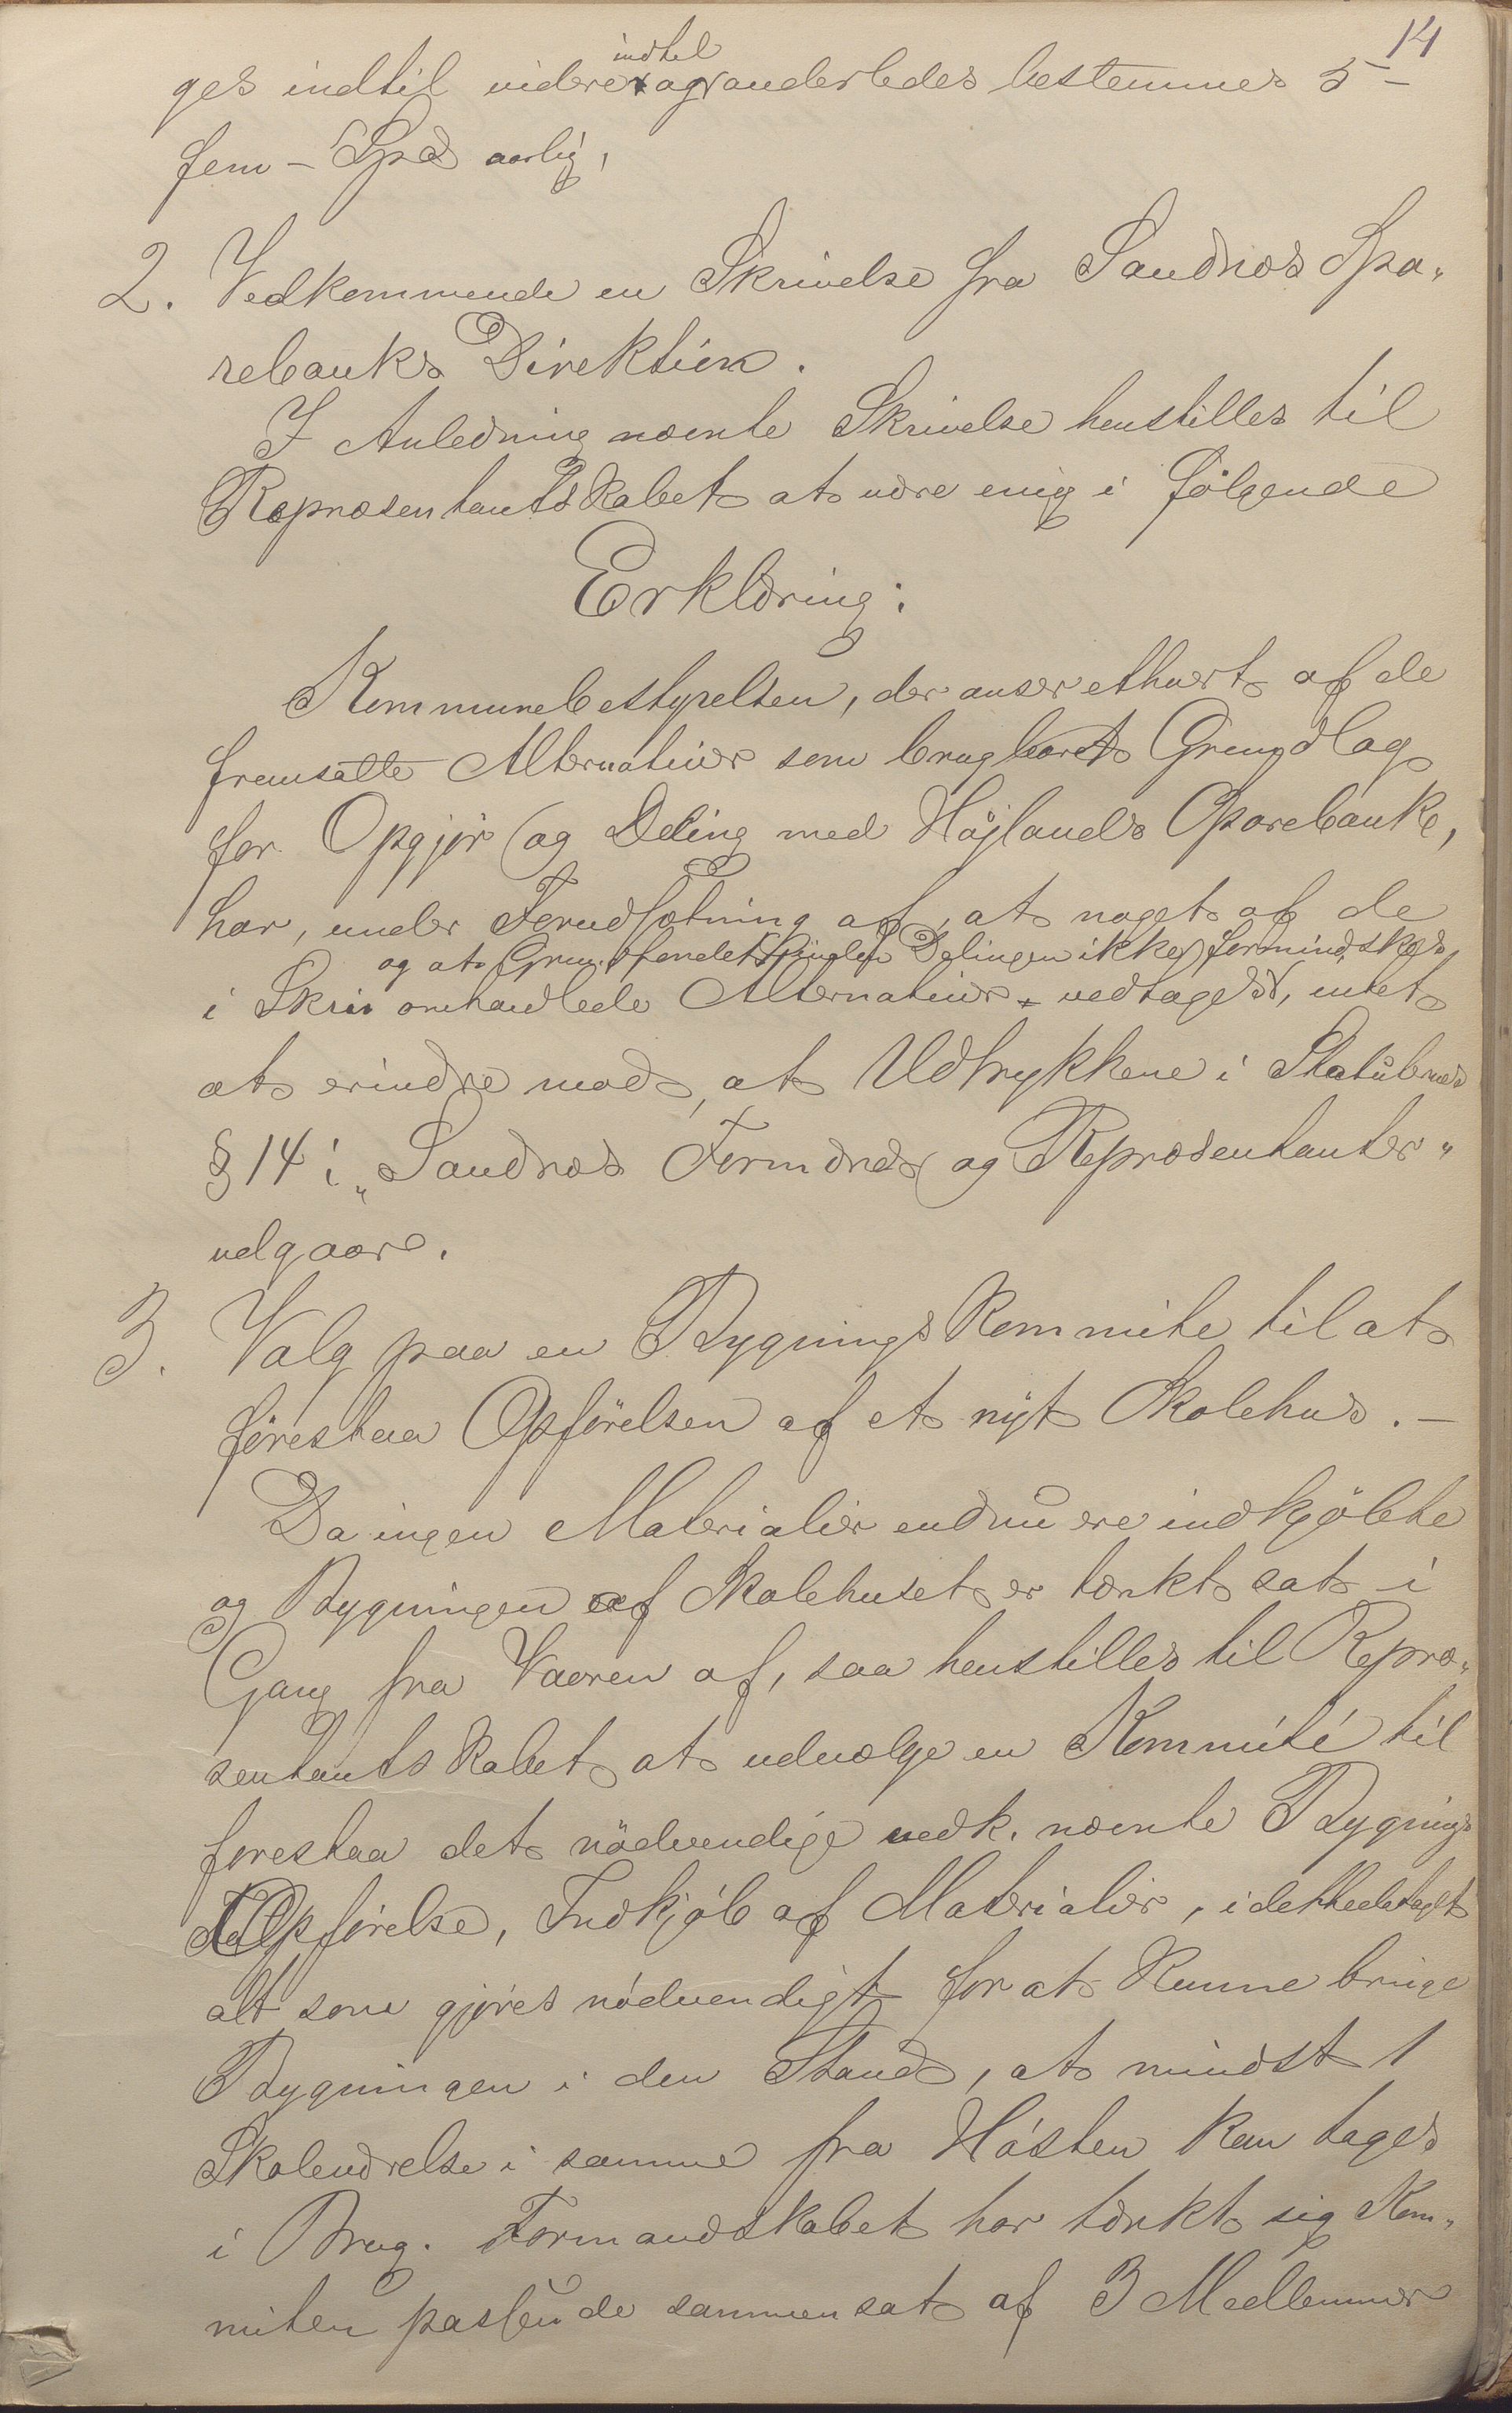 14
indtil
ges indtil videre og anderledes bestemmes 5 –
fem – Spd aarlig,
2. Vedkommende en Skrivelse fra Sandnæs Spa„
rebanks Direktion.
I Anledning nævnte Skrivelse henstilles til
Repræsentantskabet at være enig i følgende
Erklæring:
Kommunebestyrelsen, der anser ethvert af de
fremsatte Alternativer som brugbaret Grundlag
for Opgjør og Deling med Højlands Sparebank,
har, under Forudsætning af, at noget af de
og at Grundfondet Delingen ikke formindskes,
i Skriv omhandlede Alternativer vedtages, intet
at erindre mod, at Udtrykkene i Statuternes
§ 14: „Sandnæs Formænd og Repræsentanter„
udgaar.
3. Valg paa en Bygningskommite til at
forestaa Opførelsen af et nyt Skolehus. –
Da ingen Materialier endnu ere indkjøbte
og Bygningen af Skolehuset er tænkt sat i
Gang fra Vaaren af, saa henstilles til Repræ„
sentantskabet at udvælge en Kommité til
forestaa det nødvendige vedk. nævnte Bygnings
Opførelse, Indkjøb af Materialier, i detheletaget
alt som gjøres nødvendigt for at kunne bringe
Bygningen i den Stand, at mindst 1
Skoleværelse i samme fra Høsten kan tages
i Brug. Formandskabet har tænkt sig Kom„
miteen passende sammensat af 3 Medlemmer